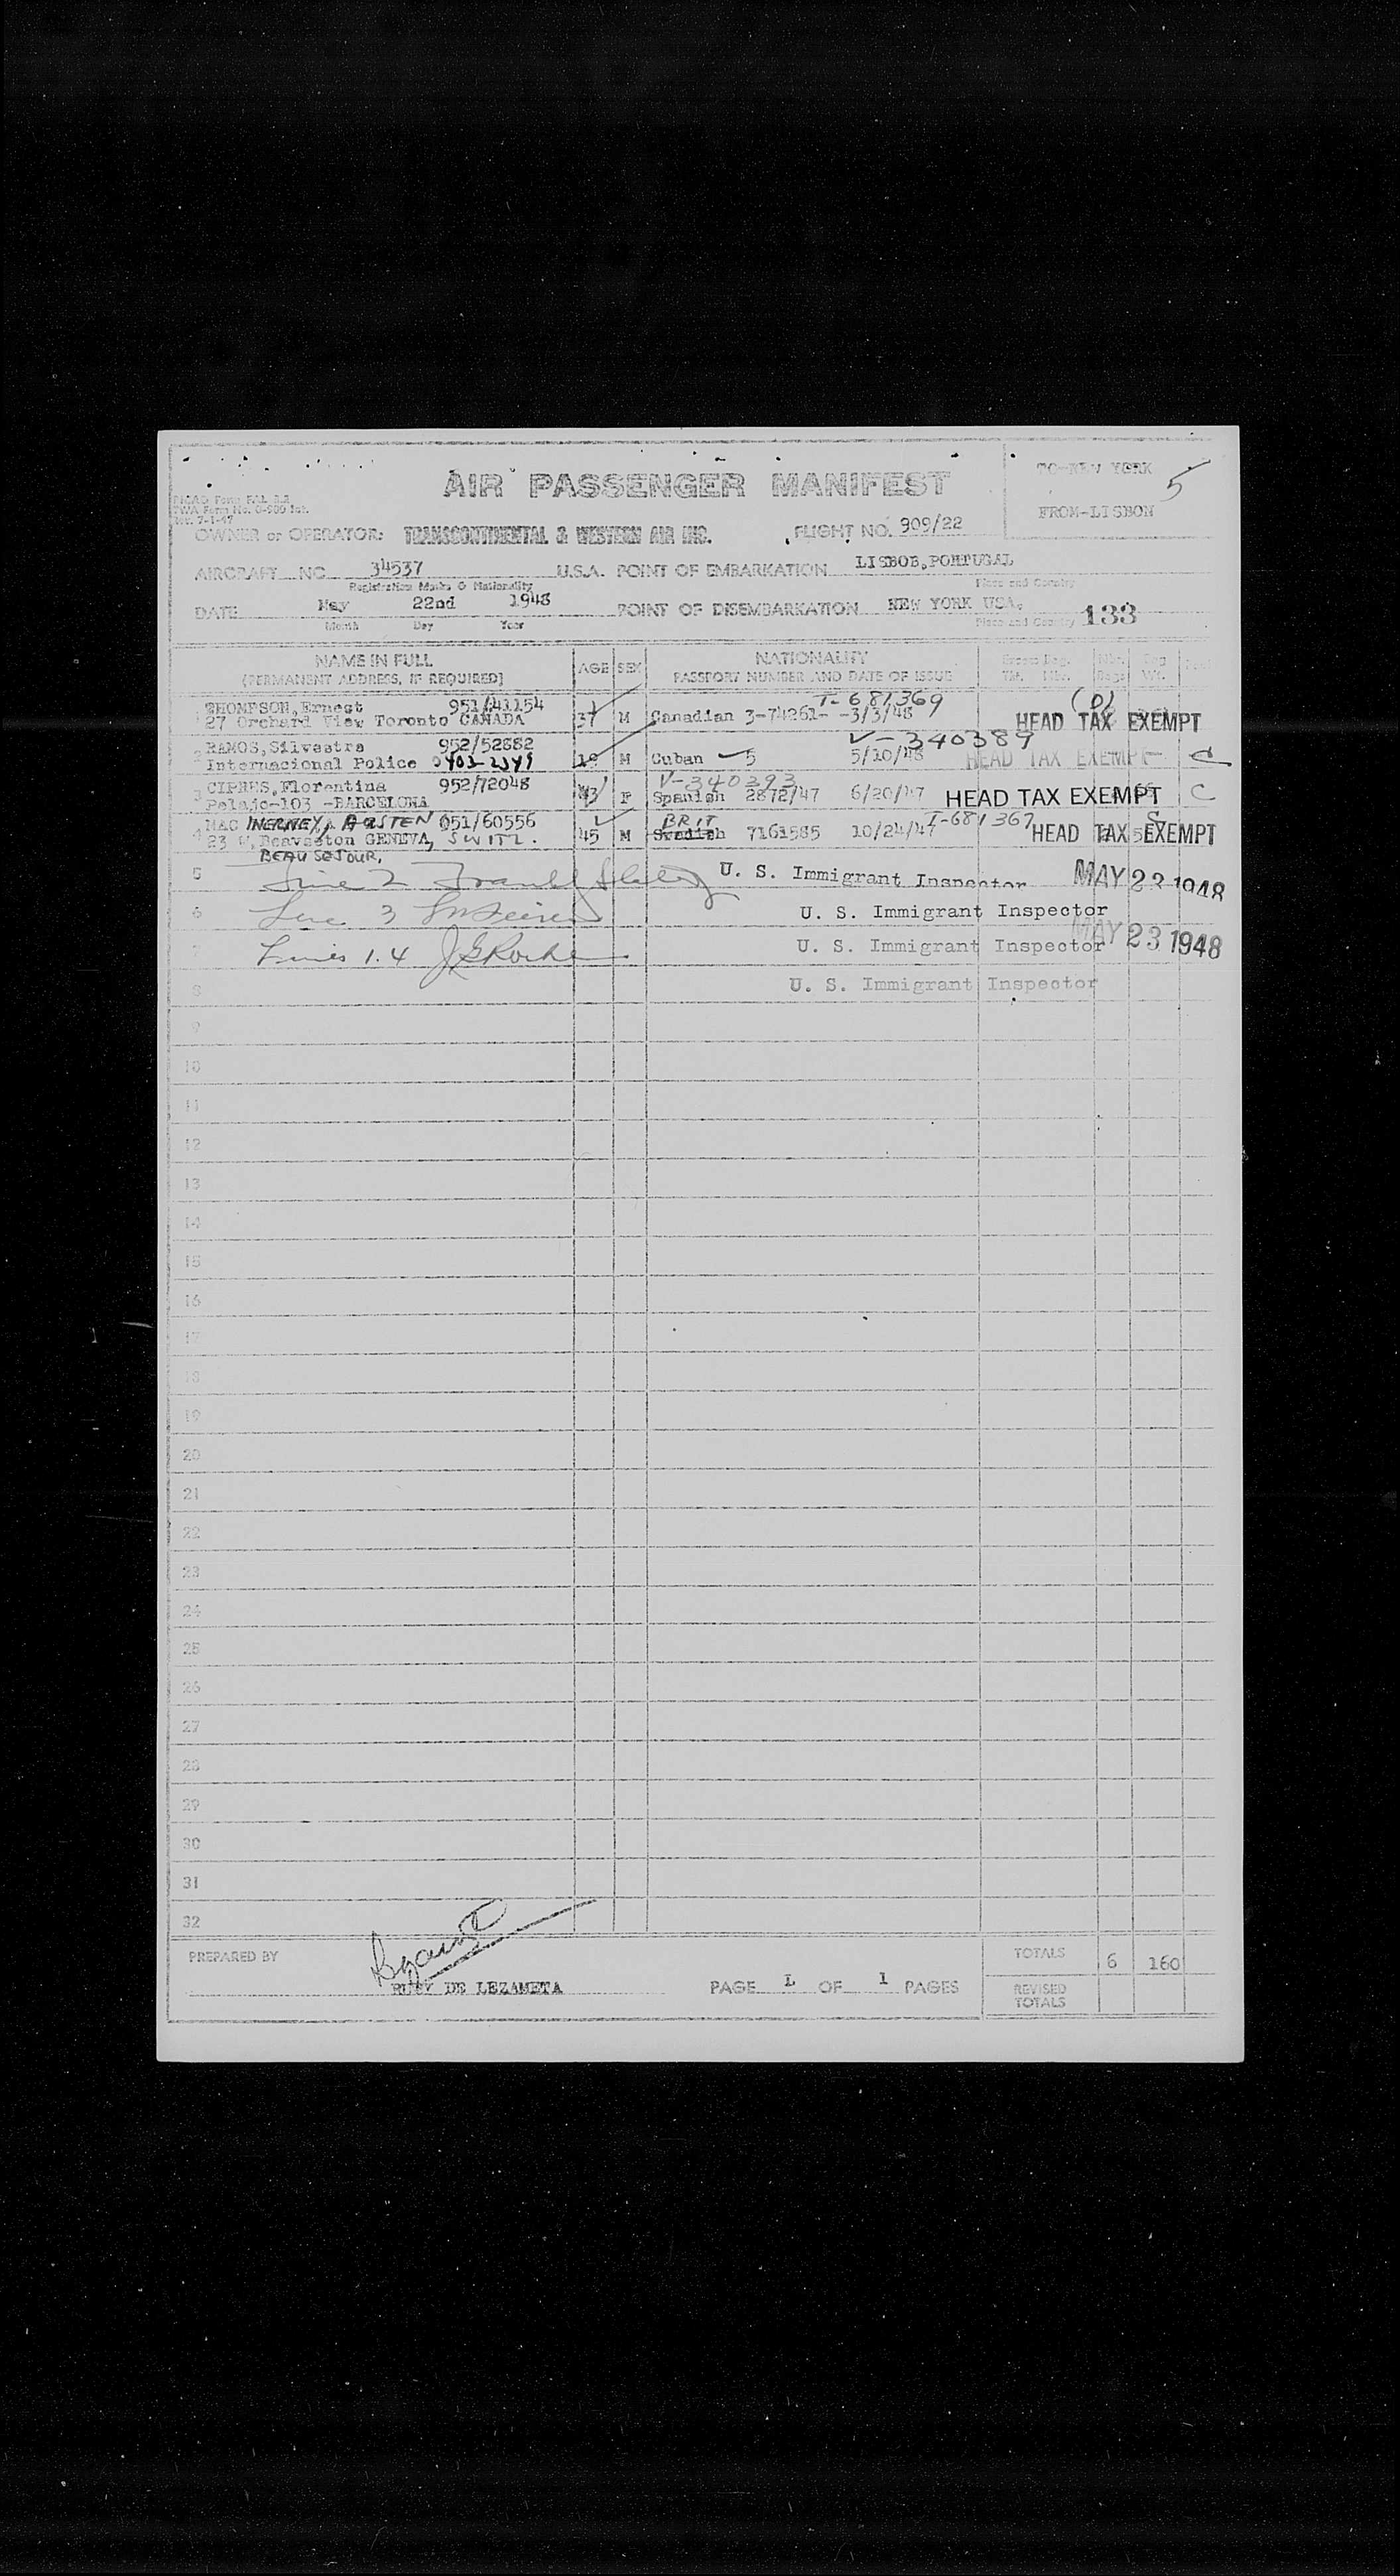 AIR PASSENGER MANIFEST
TO-NEW YORK
5
FROM-LISBON
Rev. 7-1-47
OWNER or OPERATOR: TRANSCONTINENTAL & WESTERN AIR INC. FLIGHT NO. 909/22
AIRCRAFT NO. 34537 U.S.A. POINT OF EMBARKATION LISBOB, PORTUGAL
Registration Marks & Nationality Place and Country
DATE May 22nd 1948 POINT OF DISEMBARKATION NEW YORK USA.
Month Day Year Place and Country 133
NAME IN FULL AGE SEX NATIONALITY
(PERMANENT ADDRESS, IF REQUIRED) PASSPORT NUMBER AND DATE OF ISSUE
T-681369
THOMPSON, Ernest 951/41154
27 Orchard View Toronto CANADA 37 M Canadian 3-74261- -3/3/48 HEAD TAX EXEMPT
V-340389
RAMOS, Silvestre 952/52882
Internacional Police M Cuban 5 5/10/48 HEAD TAX EXEMPT C
V-340393
CIPRES, Florentina 952/72048
Pelaio-103 -BARCELONA 43 F Spanish 2872/47 6/20/47 HEAD TAX EXEMPT C
BRIT T-681367
MAC INERNEY, 051/60556
23 GENEVA, SWITZ. 45 M 7161585 10/24/47 HEAD TAX EXEMPT
BEAU SEJOUR,
5 Line 2 U. S. Immigrant Inspector MAY 23 1948
6 Line 3 U. S. Immigrant Inspector
7 Lines 1.4 U. S. Immigrant Inspector MAY 23 1948
8 U. S. Immigrant Inspector
9
10
11
12
13
14
15
16
17
18
19
20
21
22
23
24
25
26
27
28
29
30
31
32
PREPARED BY
RUBY DE LEZAMETA PAGE 1 OF 1 PAGES
TOTALS 6 160
REVISED
TOTALS